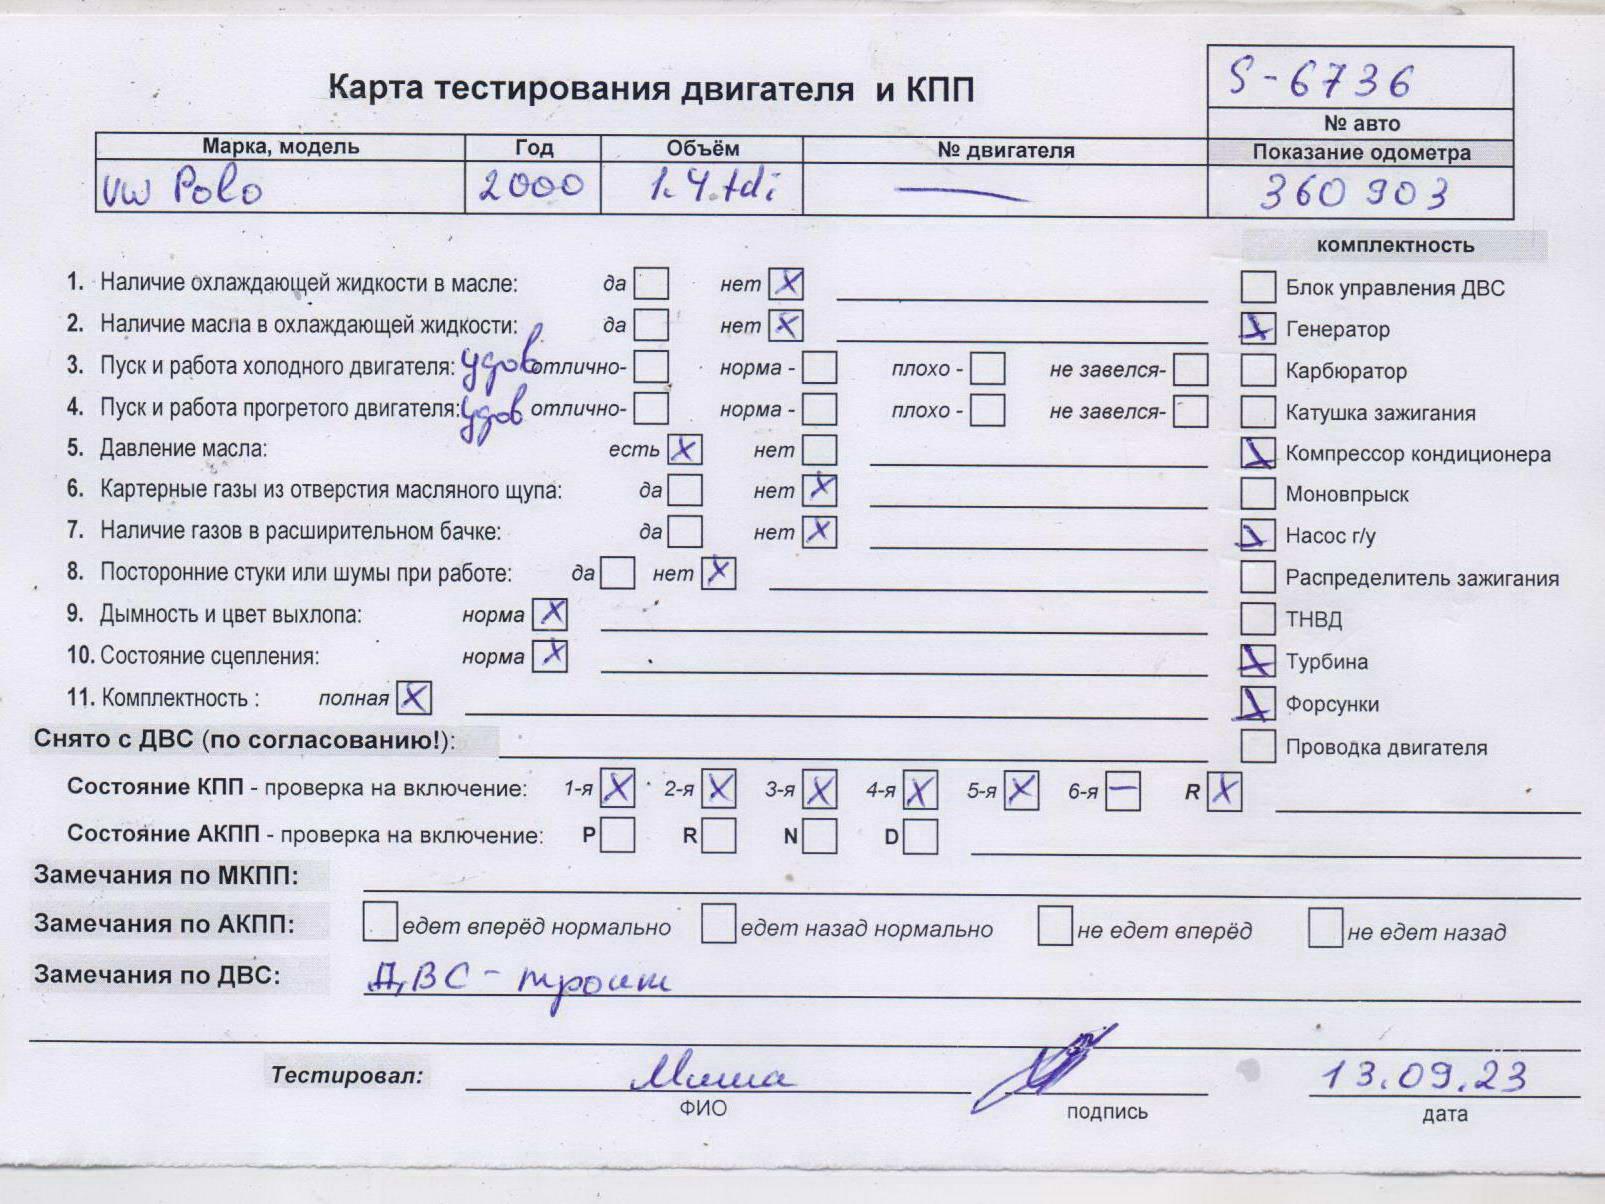 S-6736
Карта тестирования двигателя и КПП
№ авто
Марка, модель Год Объём № двигателя Показание одометра
VW Polo 2000 1.4.tdi — 360 903
комплектность
1. Наличие охлаждающей жидкости в масле: да нет X
Блок управления ДВС
2. Наличие масла в охлаждающей жидкости: да нет X
X Генератор
3. Пуск и работа холодного двигателя: удов отлично- норма - плохо - не завелся-
Карбюратор
4. Пуск и работа прогретого двигателя: удов отлично- норма - плохо - не завелся-
Катушка зажигания
5. Давление масла: есть X нет
X Компрессор кондиционера
6. Картерные газы из отверстия масляного щупа: да нет X
Моновпрыск
7. Наличие газов в расширительном бачке: да нет X
X Насос г/у
8. Посторонние стуки или шумы при работе: да нет X
Распределитель зажигания
9. Дымность и цвет выхлопа: норма X
ТНВД
10. Состояние сцепления: норма X
X Турбина
11. Комплектность : полная X
X Форсунки
Снято с ДВС (по согласованию!):
Проводка двигателя
Состояние КПП - проверка на включение: 1-я X 2-я X 3-я X 4-я X 5-я X 6-я — R X
Состояние АКПП - проверка на включение: P R N D
Замечания по МКПП:
Замечания по АКПП: едет вперёд нормально едет назад нормально не едет вперёд не едет назад
Замечания по ДВС: ДВС - троит
Тестировал: Миша 13.09.23
ФИО подпись дата